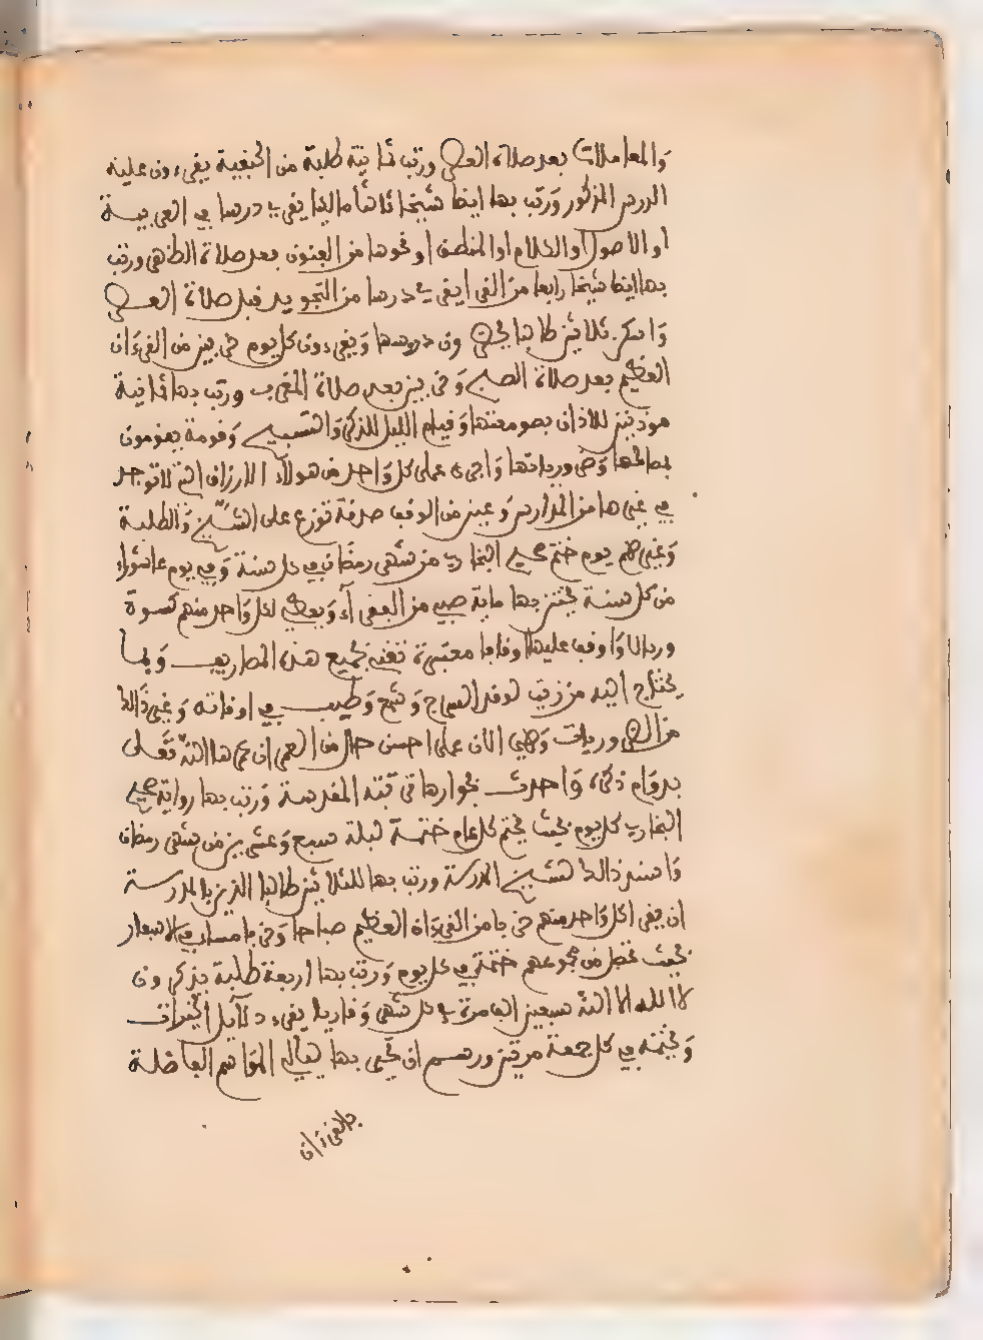 والمعاملات بعد صلاة العصر ورتب ثمانية طلبة من الحنفية يقرءون عليه
الدرس المذكور ورتب بها ايضا شيخا ثالثا مالكيا يقرئ درسا في العربية
او الاصول او الكلام او المنطق او نحوها من الفنون بعد صلاة الظهر ورتب
بها ايضا شيخا رابعا من القرا يقرئ درسا من التجويد قبل صلاة العصر
واسكن ثلاثين طالبا يحضرون دروسها ويقرءون كل يوم حزبين من القرءان
العظيم بعد صلاة الصبح وحزبين بعد صلاة المغرب ورتب بها ثمانية
موذنين للاذان بصومعتها وقيام الليل للذكر والتسبيح وقومة يقومون
بمصالحها وضرورياتها واجرى على كل واحد من هولاء الارزاق التي لا توجد
في غيرها من المدارس وعين من الوقف صدقة توزع على الشيخ والطلبة
وغيرهم يوم ختم صحيح البخاري من شهر رمضان في كل سنة وفي يوم عاشوراء
من كل سنة يختتن بها ماية صبي من الفقراء ويعطى لكل واحد منهم كسوة
وريالا واوقف عليها اوقافا معتبرة تفي بجميع هذه المصاريف وبما
يحتاج اليه من زيت لوقد السراج وشمع وطيب في اوقاته وغير ذالك
من الضروريات وهي الان على احسن حال من العمران عمرها الله تعلى
بدوام ذكره واحدث بجوارها قبته المقدسة ورتب بها رواية صحيح
البخاري كل يوم بحيث يختم كل عام ختمة ليلة سبع وعشرين من شهر رمضان
واسند ذالك لشيخ المدرسة ورتب بها للثلاثين طالبا الذين بالمدرسة
ان يقرا كل واحد منهم حزبا من القرءان العظيم صباحا وحزبا مساء في الاسفار
بحيث تحصل من مجموعهم ختمة في كل يوم ورتب بها اربعة طلبة يذكرون
لا اله الا الله سبعين الف مرة في كل شهر وقاريا يقرء دلايل الخيرات
ويختمه في كل جمعة مرتين ورسم ان تحيى بها ليالي المواسم الفاضلة
بالقرءان